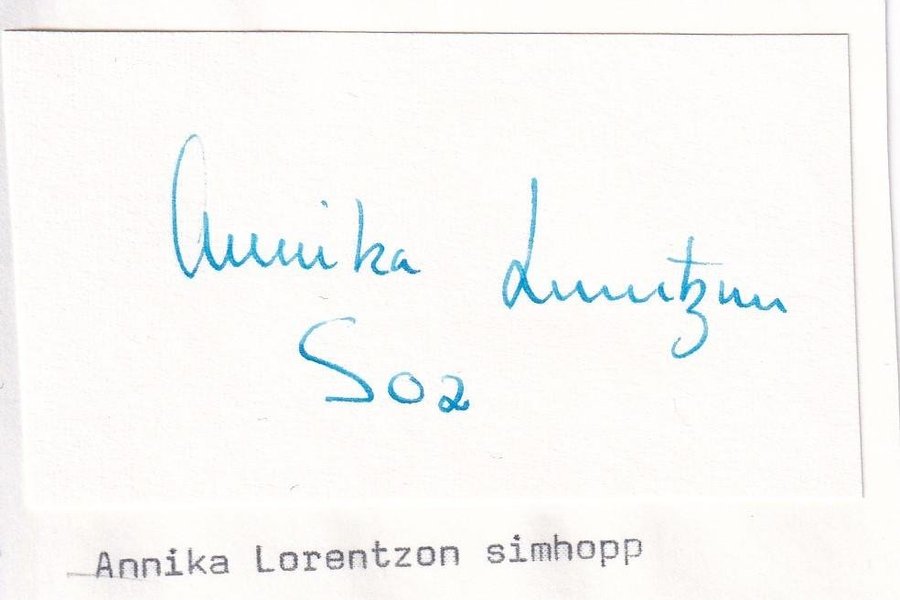 Annika Lorentzon
So2
Annika Lorentzon simhopp